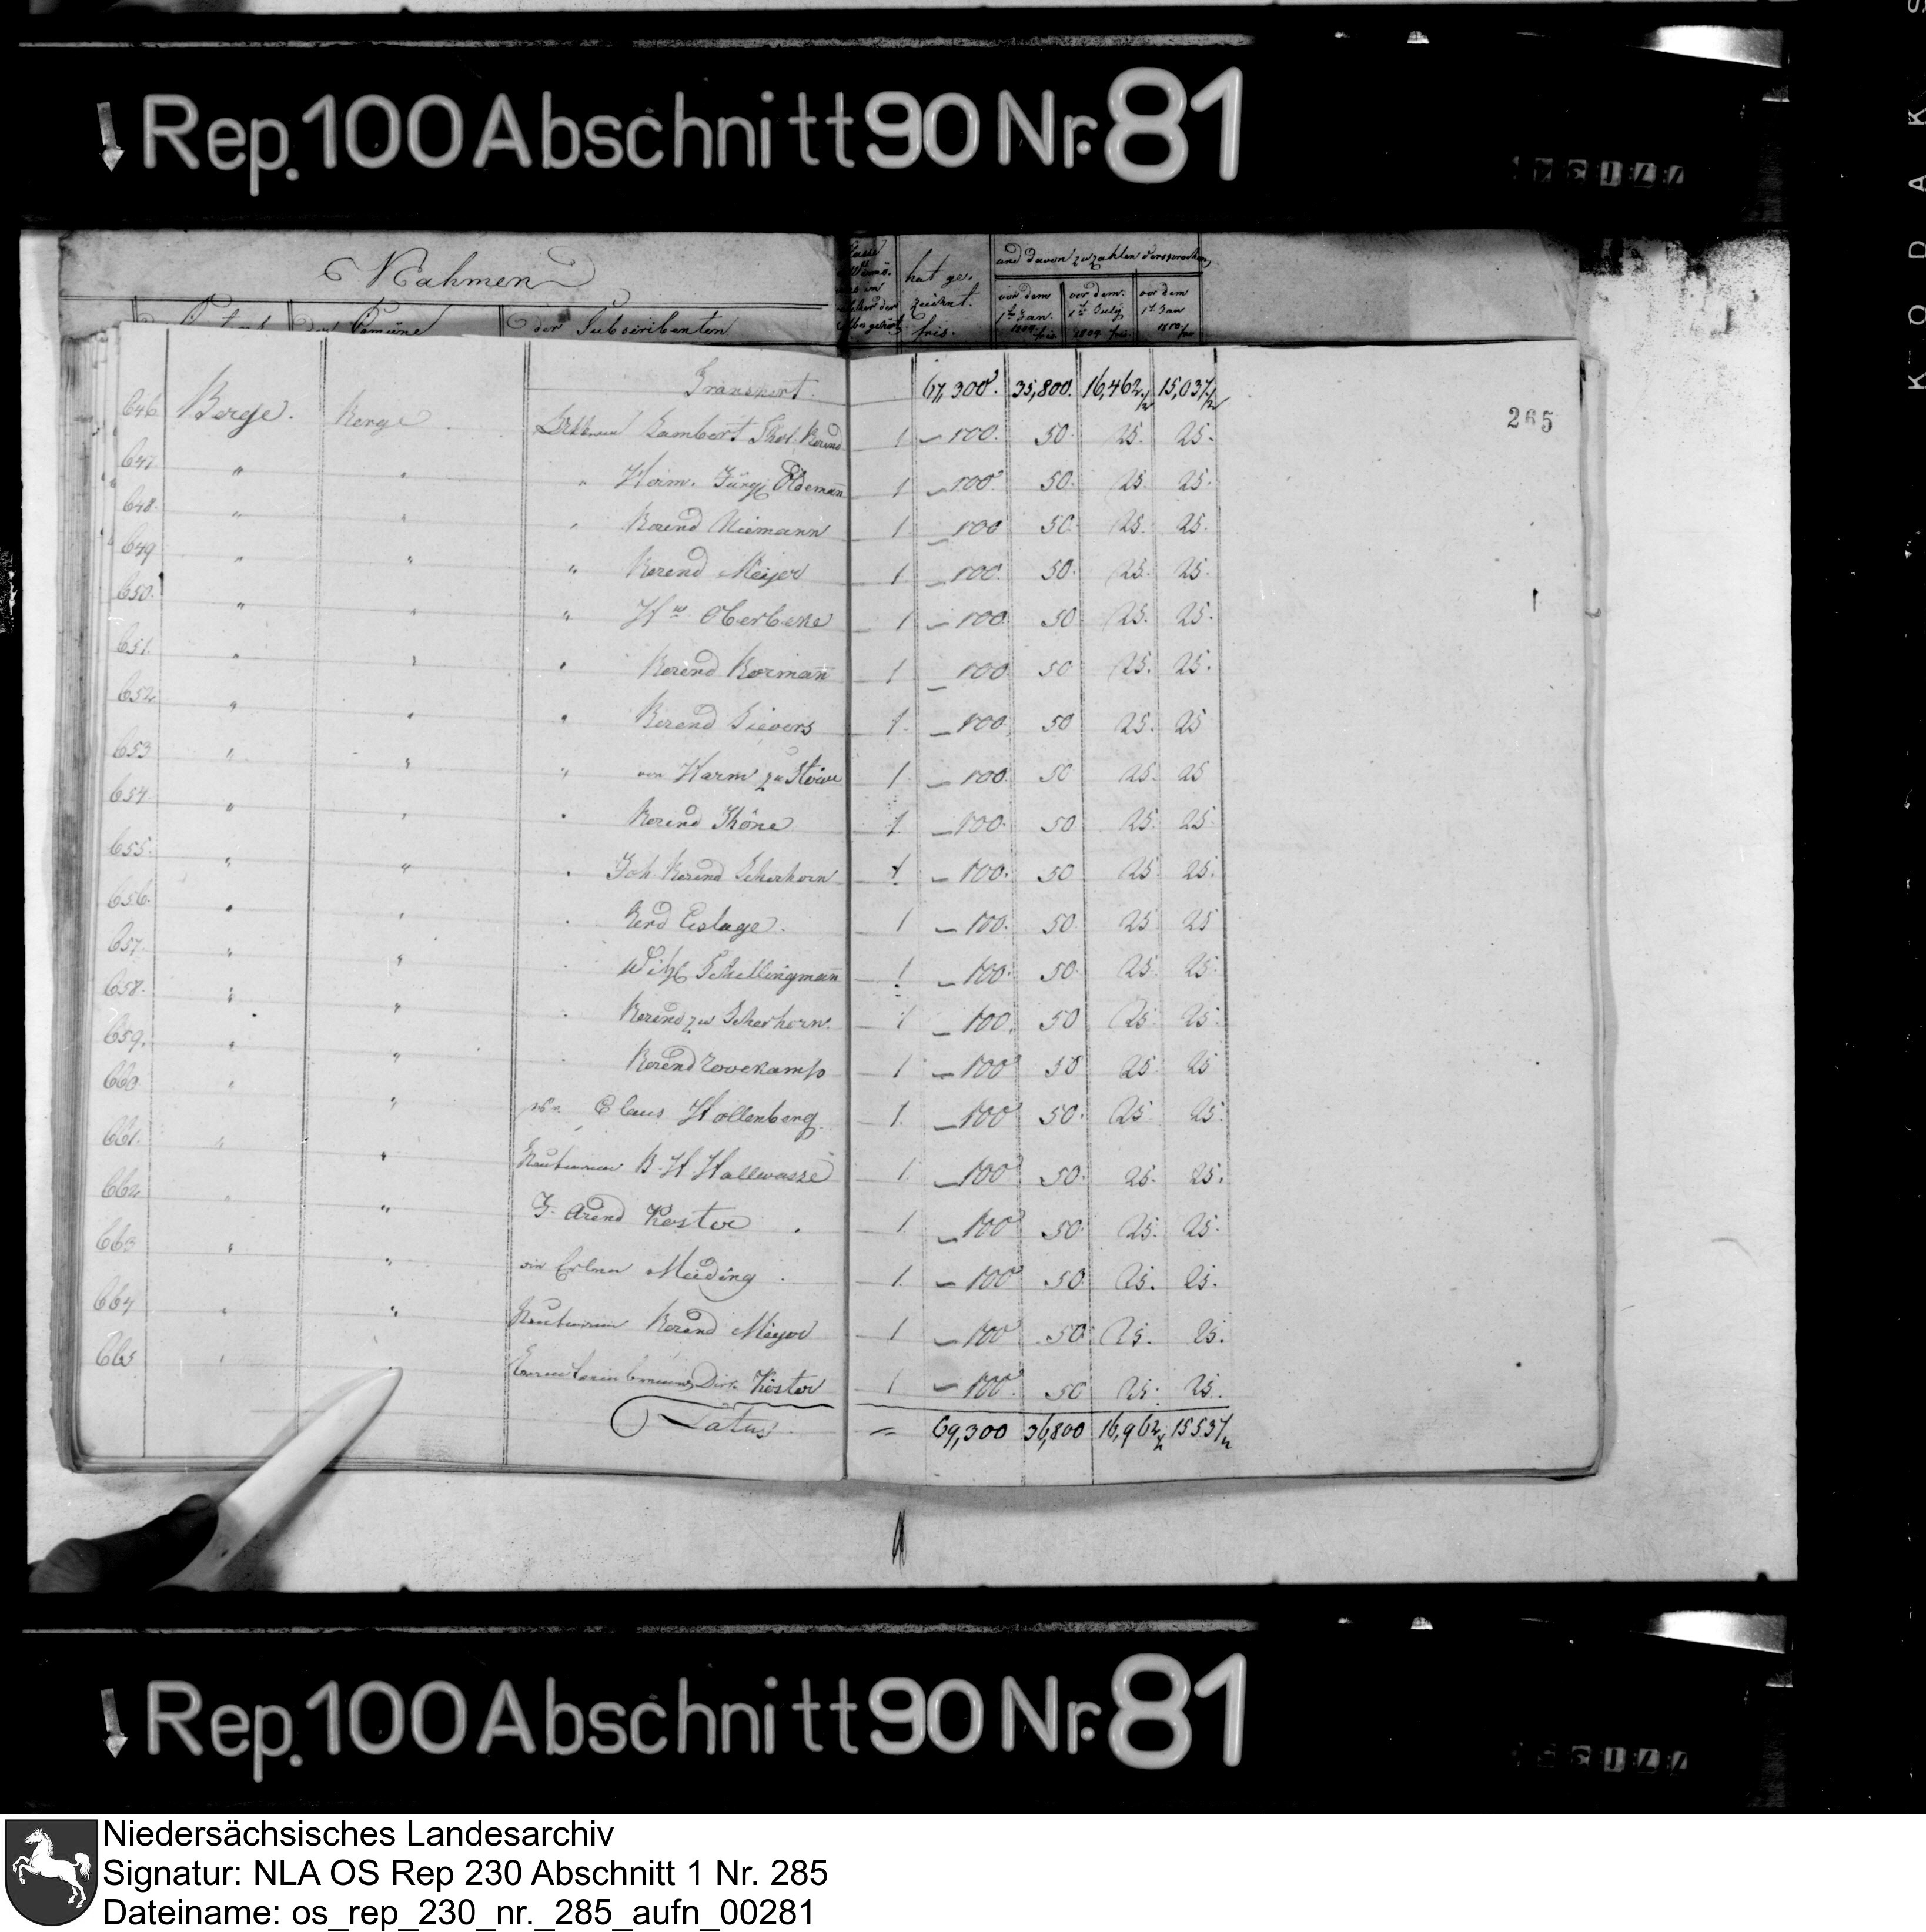 Rep. 100 Abschnitt 90 Nr. 81
KODAK
Nahmen
hat gezeichnet. frcs.
und davon zu zahlen versprochen
vor dem 1t Jan. 1809 frcs
vor dem 1t July 1809 frcs
vor dem 1t Jan 1810
der Subscribenten
Transport. 67,300. 35,800. 16,462 1/2 15,037 1/2
265
646 Berge. Berge Lambert 1 — 100. 50. 25. 25.
647. " " " Jürg Oldeman̄ 1 — 100. 50. 25. 25.
648. " " " Berend Niemann 1. — 100 50. 25. 25.
649 " " " Berend Meijer 1 — 100. 50. 25. 25.
650. " " " Oberbeke 1 — 100 50 25. 25.
651. " " " Berend Borman̄ 1 — 100 50 25. 25.
652 " " " Berend Sievers 1. — 100 50 25. 25
653 " " " von Harm zu Stöwe 1 — 100 50 25. 25
654 " " " Berend Thöne 1 — 100. 50 25. 25.
655. " " " Joh. Berend Scherhorn 1 — 100. 50 25. 25.
656. " " " Berd Eslage. 1 — 100. 50. 25 25
657. " " " Schellingman̄ 1 — 100. 50. 25. 25.
658. " " " Berend zu Scherhorn. 1 — 100. 50 25 25.
659. " " " Berend Rovekamp 1 — 100 50 25. 25
660 " " Claus Hollenberg. 1. — 100 50. 25 25.
661. " " Neubauer B. H Hallwasse 1. — 100 50. 25. 25.
662 " " J. Arend Koster 1 — 100 50. 25. 25.
663 " " Meiding. 1. — 100 50. 25. 25.
664 " " Neubauer Berend Meyer 1 — 100 50 25. 25.
665 " Dirk Köster 1 — 100. 50 25. 25.
Latus = 69,300 36,800 16,962 1/2 15537 1/2
Rep. 100 Abschnitt 90 Nr. 81
Niedersächsisches Landesarchiv
Signatur: NLA OS Rep 230 Abschnitt 1 Nr. 285
Dateiname: os_rep_230_nr._285_aufn_00281